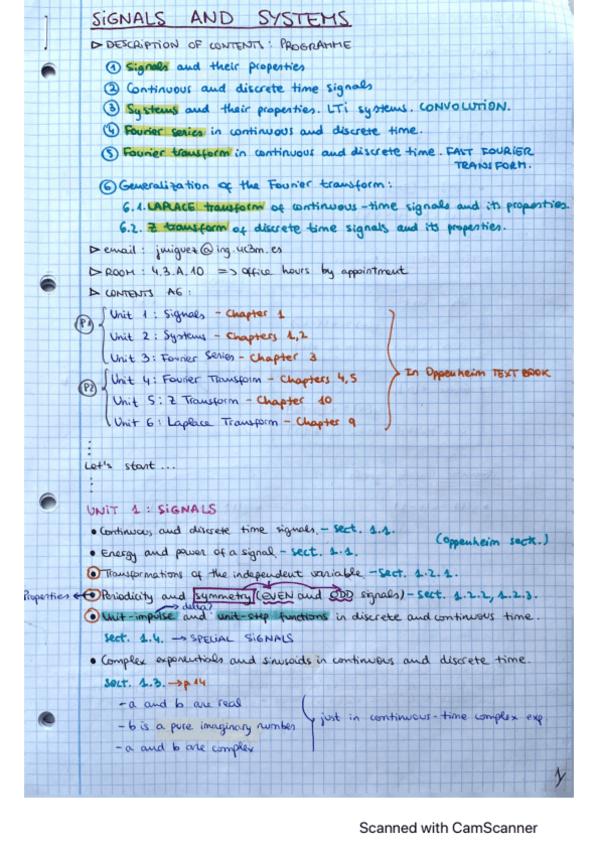 SIGNALS AND SYSTEMS
▷ DESCRIPTION OF CONTENTS: PROGRAMME
① Signals and their properties
② Continuous and discrete time signals
③ Systems and their properties. LTI systems. CONVOLUTION.
④ Fourier series in continuous and discrete time.
⑤ Fourier transform in continuous and discrete time. FAST FOURIER
TRANSFORM.
⑥ Generalization of the Fourier transform:
6.1. LAPLACE transform of continuous-time signals and its properties.
6.2. Z transform of discrete time signals and its properties.
▷ email: jmiguez@ing.uc3m.es
▷ ROOM: 4.3.A.10 => office hours by appointment
▷ CONTENTS AG:
P1
Unit 1: Signals - Chapter 1
Unit 2: Systems - Chapters 1,2
Unit 3: Fourier Series - Chapter 3
P2
Unit 4: Fourier Transform - Chapters 4,5
Unit 5: Z Transform - Chapter 10
Unit 6: Laplace Transform - Chapter 9
In Oppenheim TEXT BOOK
Let's start ...
UNIT 1: SIGNALS
• Continuous and discrete time signals - sect. 1.1.
(Oppenheim sect.)
• Energy and power of a signal - sect. 1.1.
• Transformations of the independent variable - sect. 1.2.1.
Properties ← • Periodicity and symmetry (EVEN and ODD signals) - sect. 1.2.2, 1.2.3.
→ delta
• Unit-impulse and unit-step functions in discrete and continuous time.
Sect. 1.4. → SPECIAL SIGNALS
• Complex exponentials and sinusoids in continuous and discrete time.
Sect. 1.3. → p14
- a and b are real
- b is a pure imaginary number
- a and b are complex
just in continuous-time complex exp.
1
Scanned with CamScanner